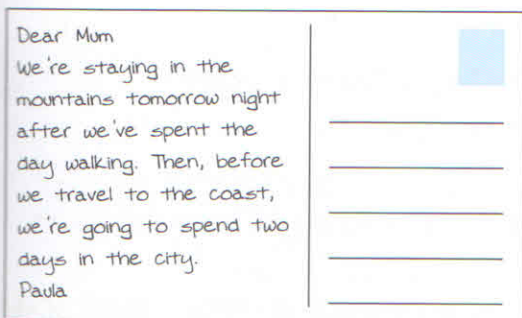 Dear Mum
We're staying in the
mountains tomorrow night
after we've spent the
day walking. Then, before
we travel to the coast,
we're going to spend two
days in the city.
Paula